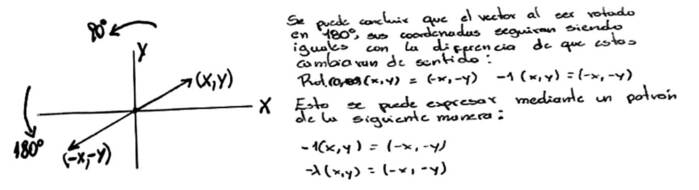 90°
Y
(x,y)
X
180°
(-x,-y)
Se puede concluir que el vector al ser rotado
en 180°, sus coordenadas seguiran siendo
iguales con la diferencia de que estas
cambiaran de sentido:
(x,y) = (-x,-y) -1 (x,y) = (-x,-y)
Esto se puede expresar mediante un patron
de la siguiente manera:
-1(x,y) = (-x,-y)
-λ(x,y) = (-x,-y)